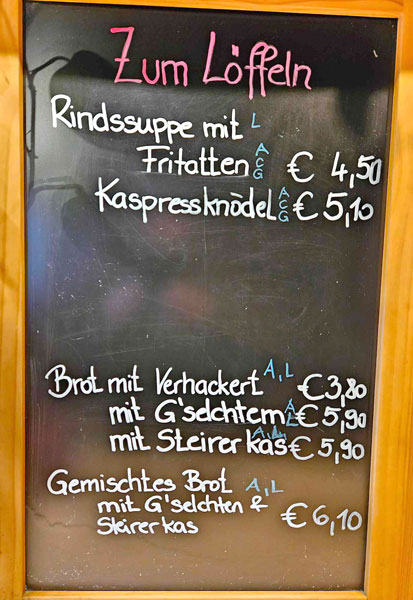 Zum Löffeln
Rindssuppe mit L
Fritatten A C G € 4,50
Kaspressknödel A C G € 5,10
Brot mit Verhackert A, L € 3,80
mit G'selchtem A L € 5,90
mit Steirer kas € 5,90
Gemischtes Brot A, L
mit G'selchten &
Steirer kas € 6,10